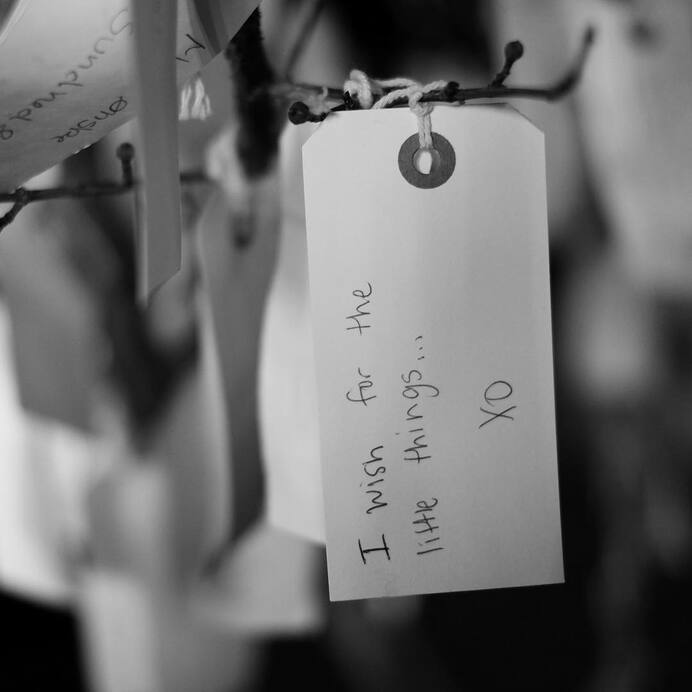 I wish for the
little things...
XO